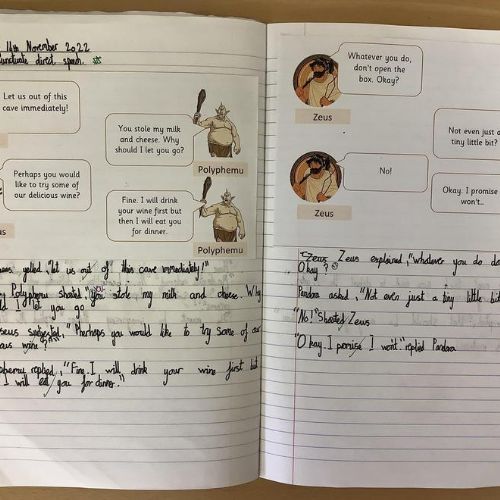 14th November 2022
punctuate direct speech
Let us out of this
cave immediately!
You stole my milk
and cheese. Why
should I let you go?
Polyphemu
Perhaps you would
like to try some of
our delicious wine?
us
Fine. I will drink
your wine first but
then I will eat you
for dinner.
Polyphemu
yelled, "let us out of this cave immediately!"
Polyphemu shouted "you stole my milk and cheese. Why
I let you go
suggested "Pherhaps you would like to try some of our
wine?"
replied, "Fine. I will drink your wine first but
I will eat you for dinner."
Whatever you do,
don't open the
box. Okay?
Zeus
Not even just a
tiny little bit?
No!
Zeus
Okay. I promise
won't..
Zeus Zeus explained, "whatever you do do
Okay?
Pandora asked, "Not even just a tiny little bit
"No!" Shouted Zeus
"Okay. I promise I wont." replied Pandora